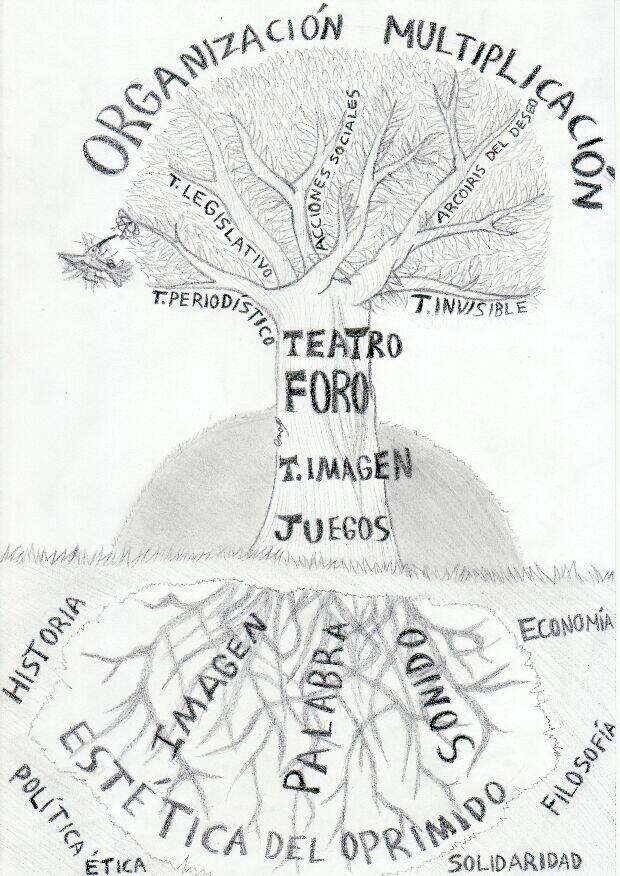 ORGANIZACIÓN MULTIPLICACIÓN
T. PERIODÍSTICO
T. LEGISLATIVO
ACCIONES SOCIALES
ARCOIRIS DEL DESEO
T. INVISIBLE
TEATRO
FORO
T. IMAGEN
JUEGOS
HISTORIA
ECONOMÍA
IMAGEN
PALABRA
SONIDO
ESTÉTICA DEL OPRIMIDO
POLÍTICA
FILOSOFÍA
ÉTICA
SOLIDARIDAD